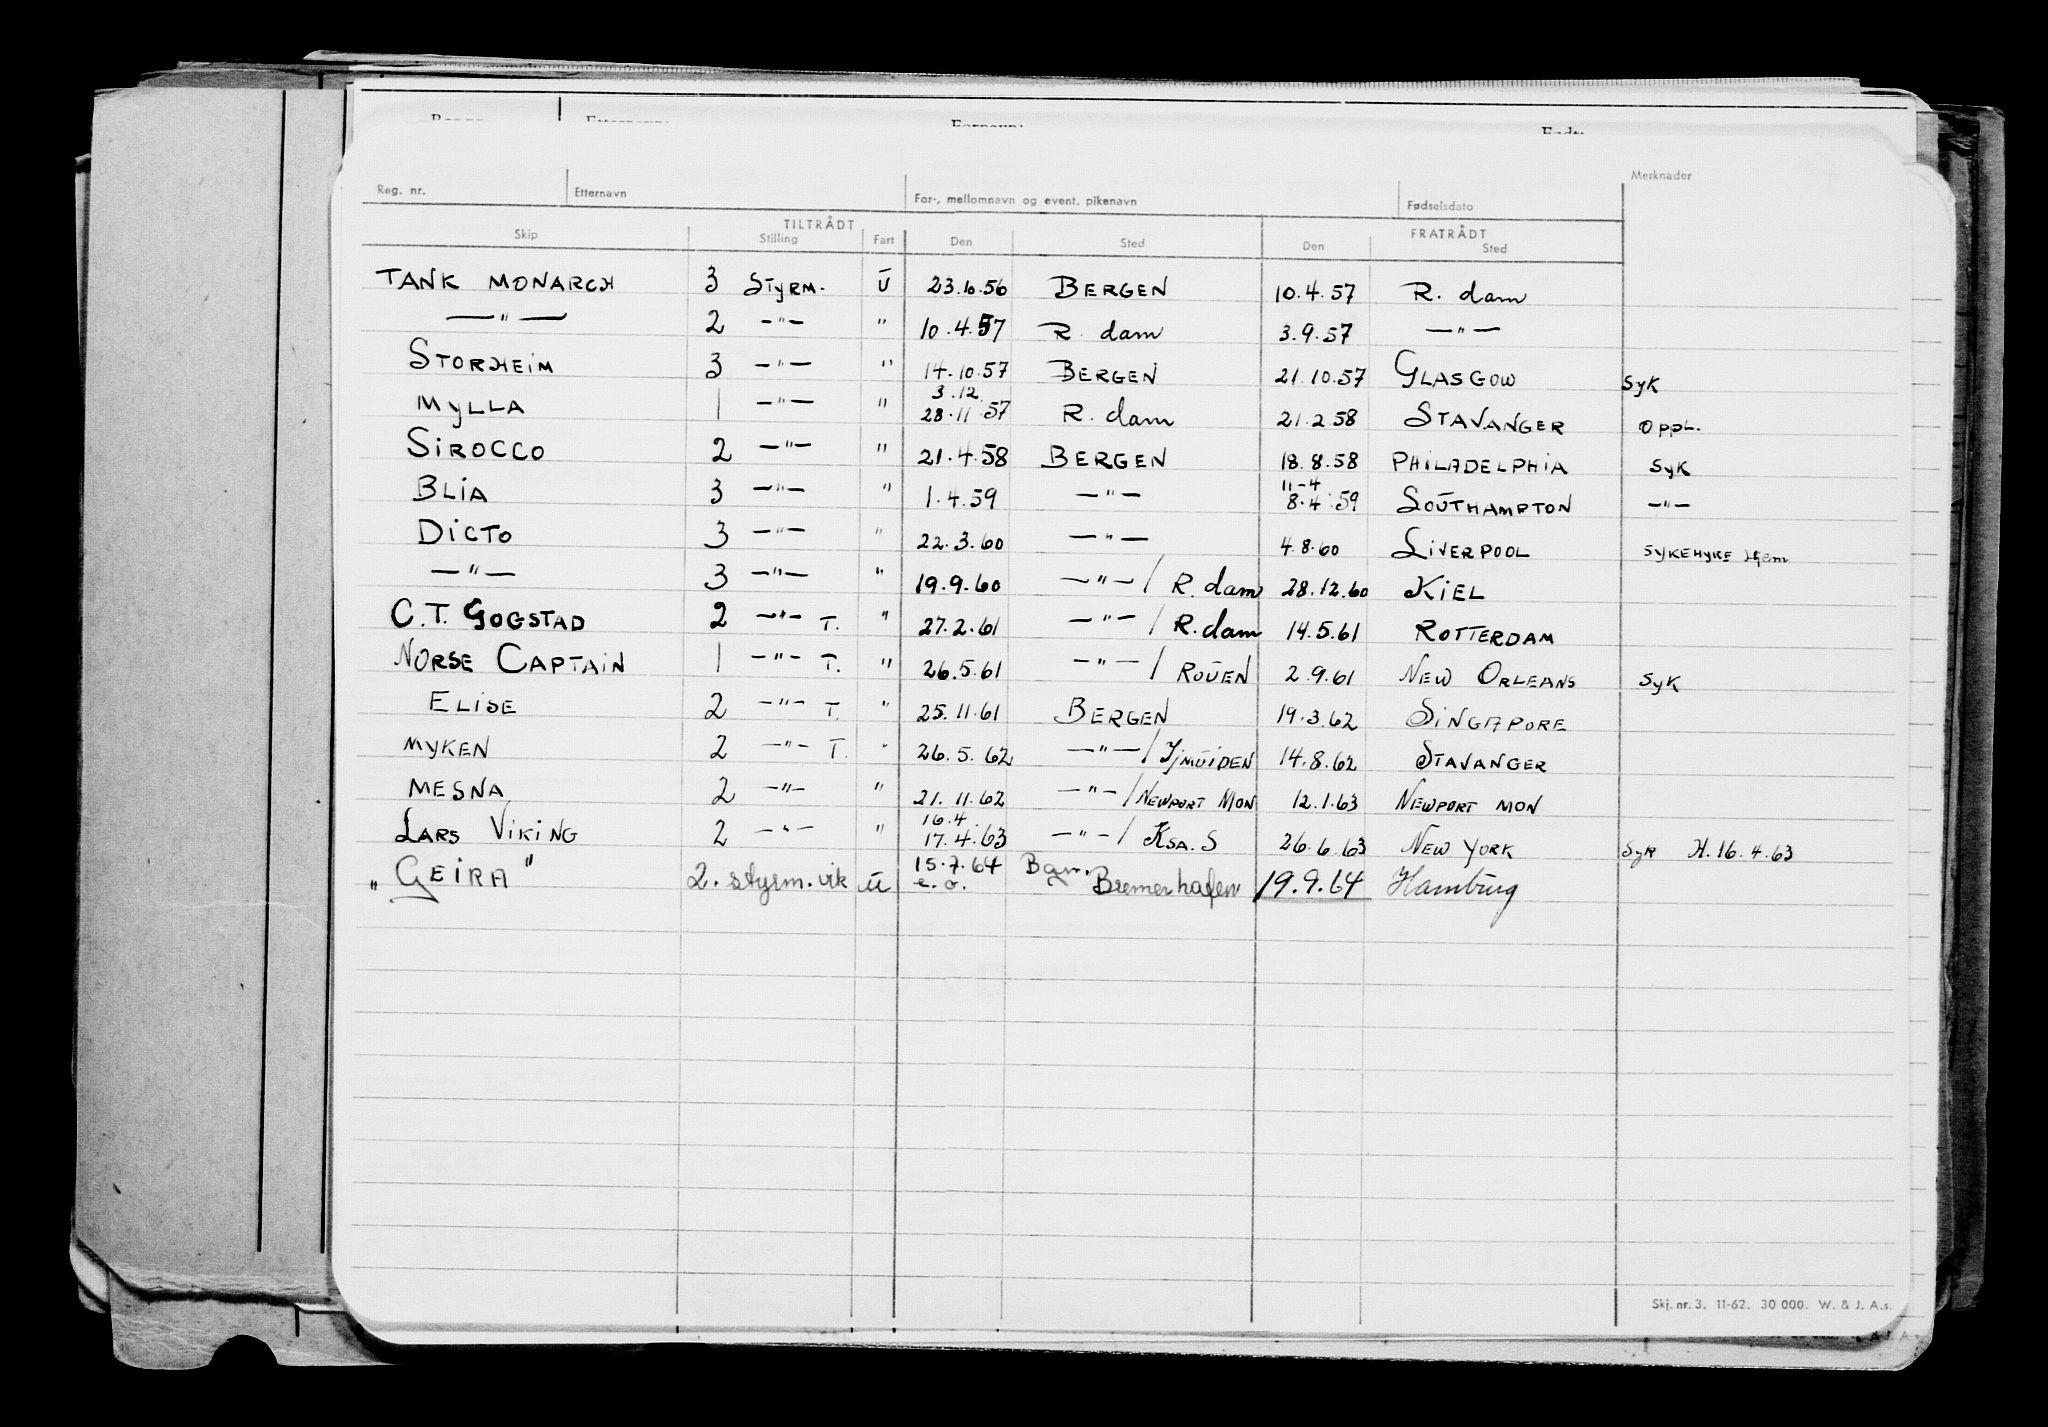 Reg. nr. Etternavn For-, mellomnavn og event. pikenavn Fødselsdato Merknader
TILTRÅDT FRATRÅDT
Skip Stilling Fart Den Sted Den Sted
TANK MONARCH 3 STYRM. U 23.10.56 BERGEN 10.4.57 R. dam
—"— 2 —"— " 10.4.57 R. dam 3.9.57 —"—
STORHEIM 3 —"— " 14.10.57 BERGEN 21.10.57 GLASGOW SYK
3.12.
MYLLA 1 —"— " 28.11.57 R. dam 21.2.58 STAVANGER OPPL.
SIROCCO 2 —"— " 21.4.58 BERGEN 18.8.58 PHILADELPHIA SYK
11-4
BLIA 3 —"— " 1.4.59 —"— 8.4.59 SOUTHAMPTON —"—
DICTO 3 —"— " 22.3.60 —"— 4.8.60 LIVERPOOL SYKEHYRE Hjem
—"— 3 —"— " 19.9.60 —"—/ R. dam 28.12.60 KIEL
C.T. GOGSTAD 2 —"— T. " 27.2.61 —"—/ R. dam 14.5.61 ROTTERDAM
NORSE CAPTAIN 1 —"— T. " 26.5.61 —"—/ ROUEN 2.9.61 NEW ORLEANS SYK
ELISE 2 —"— T. " 25.11.61 BERGEN 19.3.62 SINGAPORE
MYKEN 2 —"— T. " 26.5.62 —"—/ IJMUIDEN 14.8.62 STAVANGER
MESNA 2 —"— " 21.11.62 —"—/ NEWPORT MON 12.1.63 NEWPORT MON
16.4.
LARS VIKING 2 —"— " 17.4.63 —"—/ KSA. S 26.6.63 NEW YORK SYK H. 16.4.63
15.7.64 Bgn.
„GEIRA" 2. styrm. vik u e. o. Bremerhafen 19.9.64 Hamburg
Skj. nr. 3. 11-62. 30 000. W. & J. A.s.